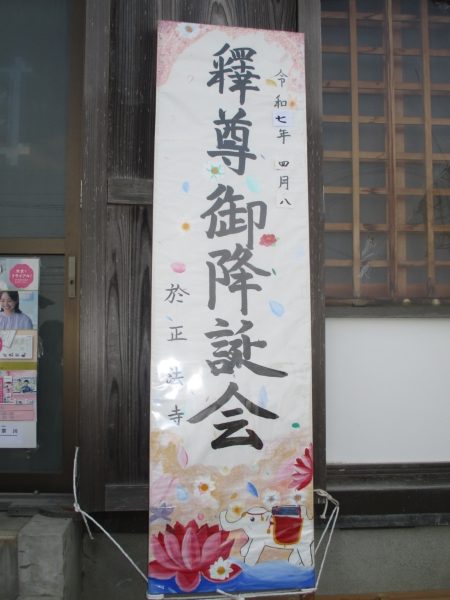 令和七年 四月八
釋尊御降誕会
於正法寺